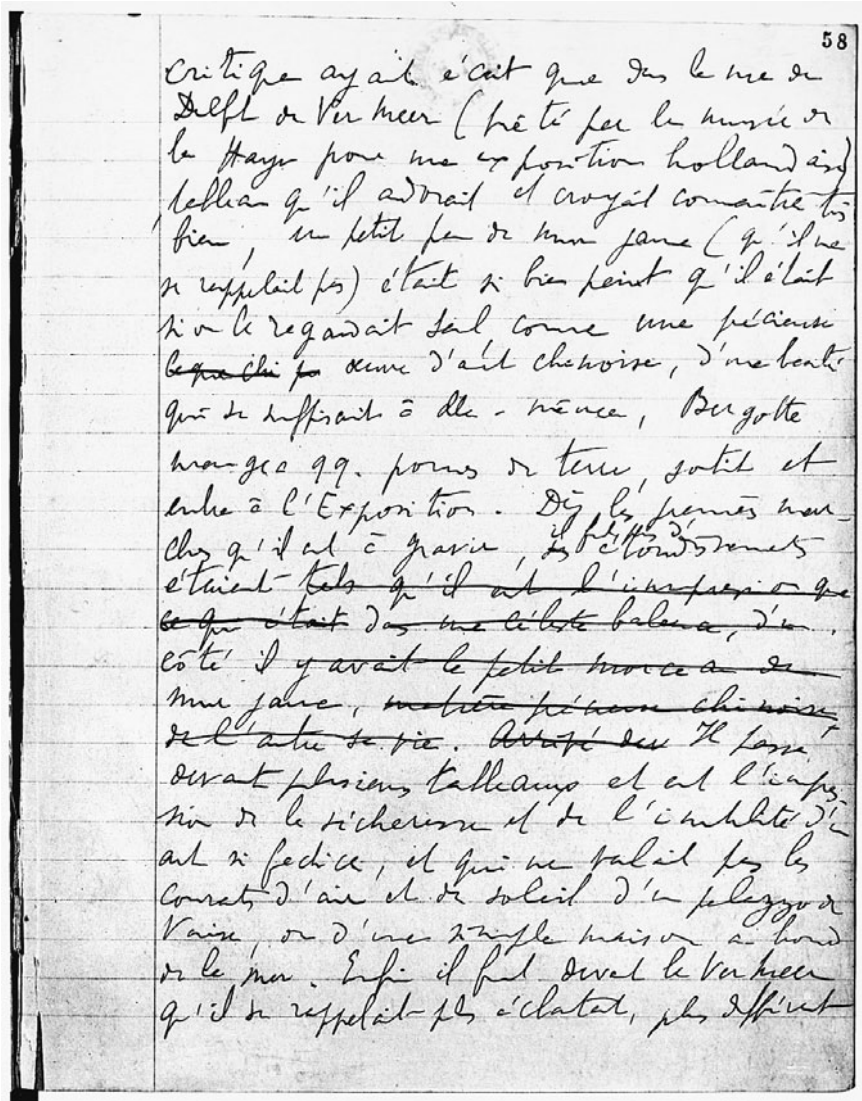 58
critique ayant écrit que dans la vue de
Delft de Ver Meer (prêté par le musée de
la Haye pour une exposition hollandaise)
tableau qu'il adorait et croyait connaître très
bien, un petit pan de mur jaune (qu'il ne
se rappelait pas) était si bien peint qu'il était
si on le regardait seul comme une précieuse
œuvre d'art chinoise, d'une beauté
qui se suffisait à elle-même, Bergotte
mangea qq. pommes de terre, sortit et
entra à l'Exposition. Dès les premières mar-
ches qu'il eut à gravir, il fut pris d'étourdissements
étaient tels qu'il eut l'impression que
ce qui était dans une céleste balance, d'un
côté il y avait le petit morceau de
mur jaune, matière précieuse chinoise,
de l'autre sa vie. Arrivé Il passa
devant plusieurs tableaux et eut l'impres-
sion de la sécheresse et de l'inutilité d'un
art si factice, et qui ne valait pas les
courants d'air et de soleil d'un palazzo de
Venise, ou d'une simple maison au bord
de la mer. Enfin il fut devant le Ver Meer
qu'il se rappelait plus éclatant, plus différent